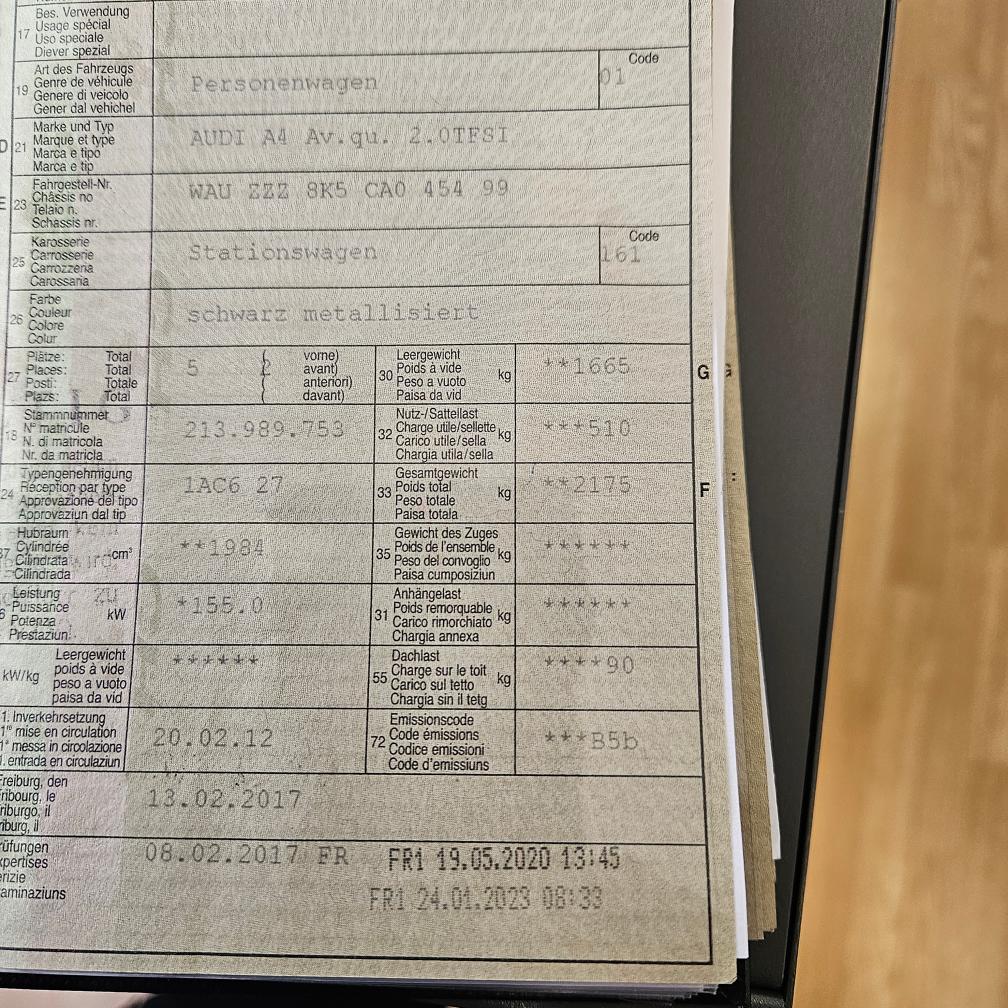 17 Bes. Verwendung
Usage spécial
Uso speciale
Diever spezial
19 Art des Fahrzeugs
Genre de véhicule
Genere di veicolo
Gener dal vehichel
Personenwagen
Code
01
D 21 Marke und Typ
Marque et type
Marca e tipo
Marca e tip
AUDI A4 Av.qu. 2.0TFSI
E 23 Fahrgestell-Nr.
Châssis no
Telaio n.
Schassis nr.
WAU ZZZ 8K5 CA0 454 99
25 Karosserie
Carrosserie
Carrozzeria
Carossaria
Stationswagen
Code
161
26 Farbe
Couleur
Colore
Colur
schwarz metallisiert
27 Plätze: Total
Places: Total
Posti: Totale
Plazs: Total
5 ( 2 vorne)
avant)
anteriori)
davant)
30 Leergewicht
Poids à vide
Peso a vuoto
Paisa da vid
kg
**1665
G
18 Stammnummer
N° matricule
N. di matricola
Nr. da matricla
213.989.753
32 Nutz-/Sattellast
Charge utile/sellette
Carico utile/sella
Chargia utila/sella
kg
***510
24 Typengenehmigung
Réception par type
Approvazione del tipo
Approvaziun dal tip
1AC6 27
33 Gesamtgewicht
Poids total
Peso totale
Paisa totala
kg
**2175
F
37 Hubraum
Cylindrée
Cilindrata
Cilindrada
cm³
**1984
35 Gewicht des Zuges
Poids de l'ensemble
Peso del convoglio
Paisa cumposiziun
kg
******
6 Leistung
Puissance
Potenza
Prestaziun
kW
*155.0
31 Anhängelast
Poids remorquable
Carico rimorchiato
Chargia annexa
kg
******
kW/kg Leergewicht
poids à vide
peso a vuoto
paisa da vid
******
55 Dachlast
Charge sur le toit
Carico sul tetto
Chargia sin il tetg
kg
****90
1. Inverkehrsetzung
1re mise en circulation
1a messa in circolazione
1. entrada en circulaziun
20.02.12
72 Emissionscode
Code émissions
Codice emissioni
Code d'emissiuns
***B5b
Freiburg, den
Fribourg, le
riburgo, il
riburg, il
13.02.2017
rüfungen
xpertises
erizie
aminaziuns
08.02.2017 FR
FR1 19.05.2020 13:45
FR1 24.01.2023 08:33